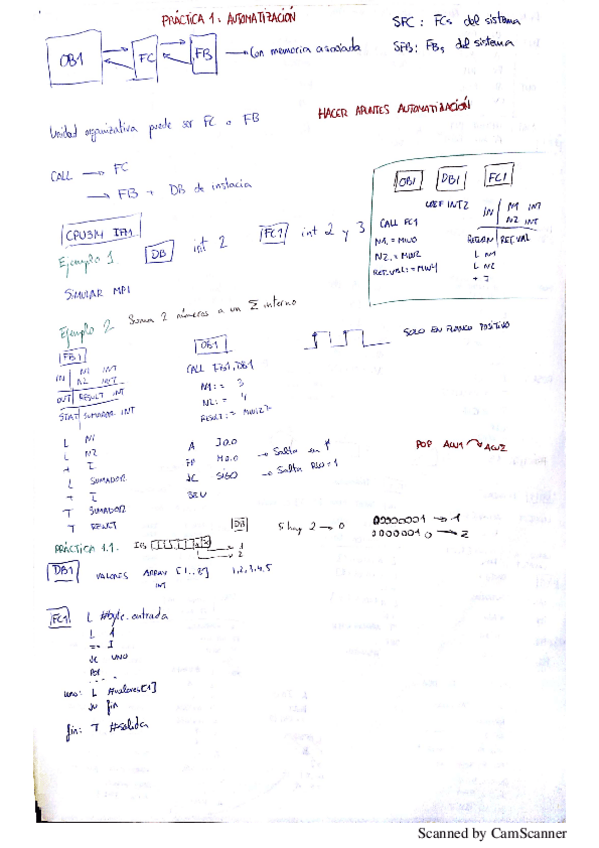 PRÁCTICA 1: AUTOMATIZACIÓN
SFC: FCs del sistema
SFB: FBs del sistema
OB1
FC
FB
Con memoria asociada
HACER APUNTES AUTOMATIZACIÓN
Unidad organizativa puede ser FC o FB
CALL → FC
→ FB + DB de instacia
OB1 DB1 FC1
CALL FC1
N1:= MW0
N2:= MW2
RET_VAL:= MW4
IN N1 INT
N2 INT
RETURN RET_VAL
L N1
L N2
+ I
Ejemplo 1
DB int 2
FC1 int 2 y 3
SIMULAR MPI
Ejemplo 2 Suma 2 números a un Σ interno
SOLO EN FLANCO POSITIVO
FB1
IN N1 INT
N2 INT
OUT RESULT INT
STAT SUMADOR INT
L N1
L N2
+ I
L SUMADOR
+ I
T SUMADOR
T RESULT
OB1
CALL FB1, DB1
N1:= 3
N2:= 4
A I0.0
FP M0.0
JC SIGO → Salta RLO=1
BEU
POP ACU1 ACU2
PRÁCTICA 1.1.
IB
1
2
DB
Si hay 2 → 0
00000001 → 1
0000010 → 2
DB1
VALORES ARRAY [1..8] 1,2,3,4,5
INT
FC1
L #byte_entrada
L 1
== I
JC UNO
POP
uno: L #valores[1]
JU fin
fin: T #salida
Scanned by CamScanner